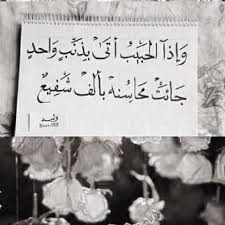 وَإِذَا الحَبِيْبُ أَتَىٰ بِذَنْبٍ وَاحِدٍ
جَائَتْ مَحَاسِنُهُ بِأَلْفِ شَفِيْعٍ